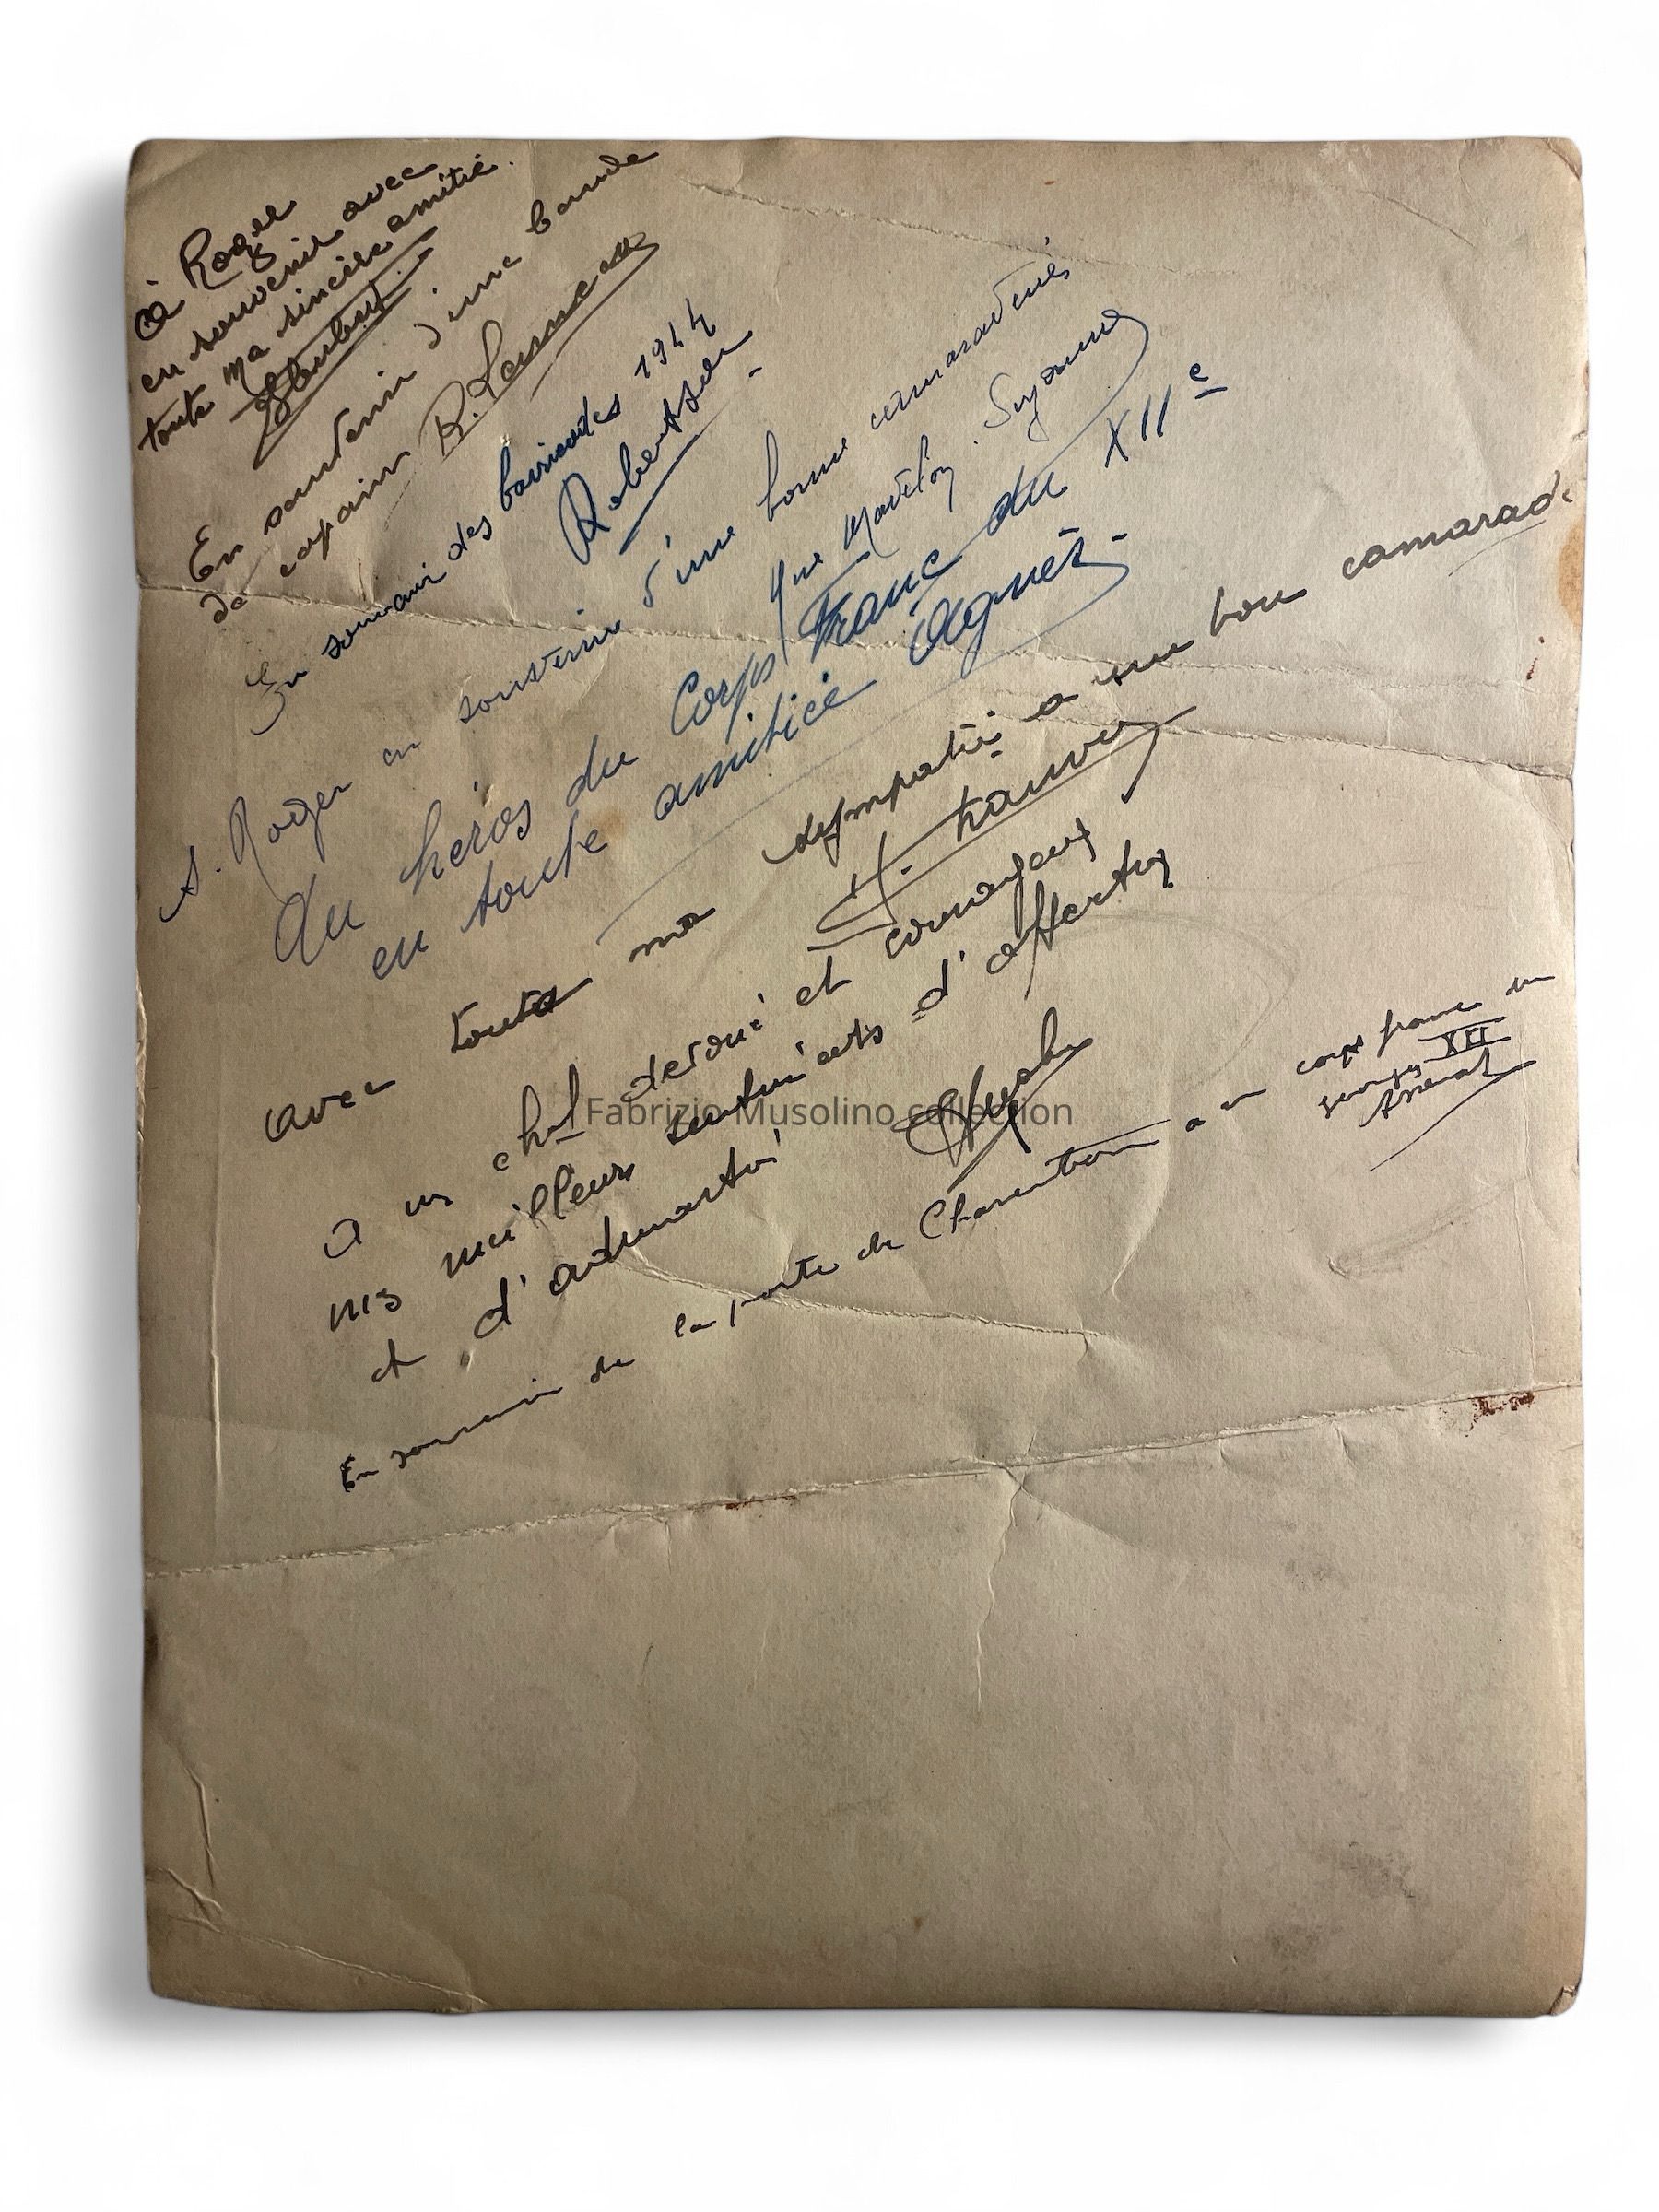 à Roger
en souvenir avec
toute ma sincère amitié.
En souvenir d'une bande
de copains R.
En souvenir des barricades 1944
Robert
A. Roger en souvenir d'une bonne camaraderie
Mme Suzanne
Au héros du Corps Franc du XIIe
en toute amitiée Agnès.
avec toute ma sympatie a un bon camarade
H.
A un chef dévoué et courageux
mes meilleurs sentiments d'affection
et d'admiration
En souvenir de la porte de Charenton a un corps franc du
XII
Fabrizio Musolino collection